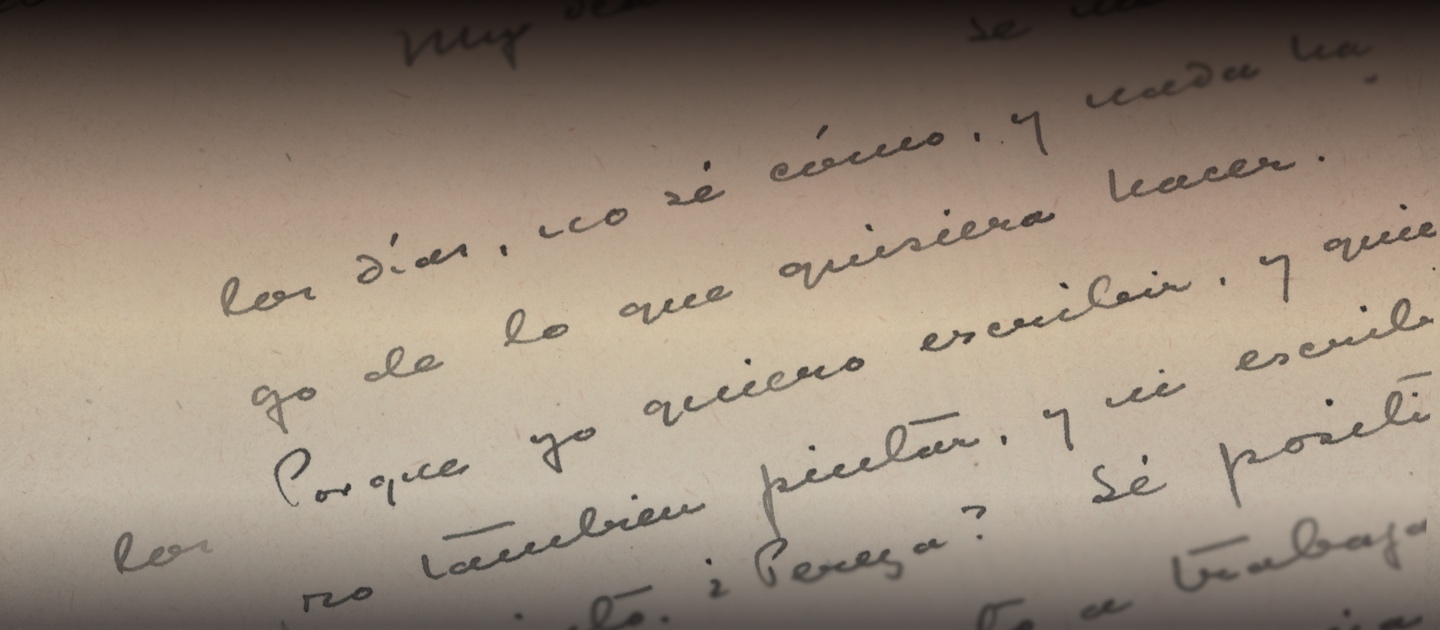 Muy
se
los días, no sé cómo, y nada ha
go de lo que quisiera hacer.
Porque yo quiero escribir, y quie
ro tambien pintar, y ni escrib
los
¿Pereza? Sé positi
a trabaja